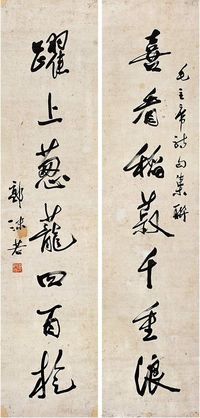 毛主席詩句集聯
喜看稻菽千重浪
躍上蔥蘢四百旋
郭沫若